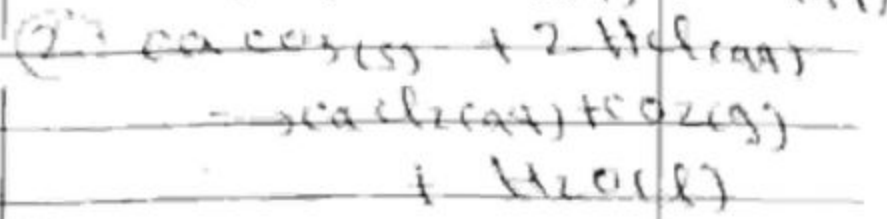 (2) CaCO3(s) + 2HCl(aq)
→ CaCl2(aq) + CO2(g)
+ H2O(l)